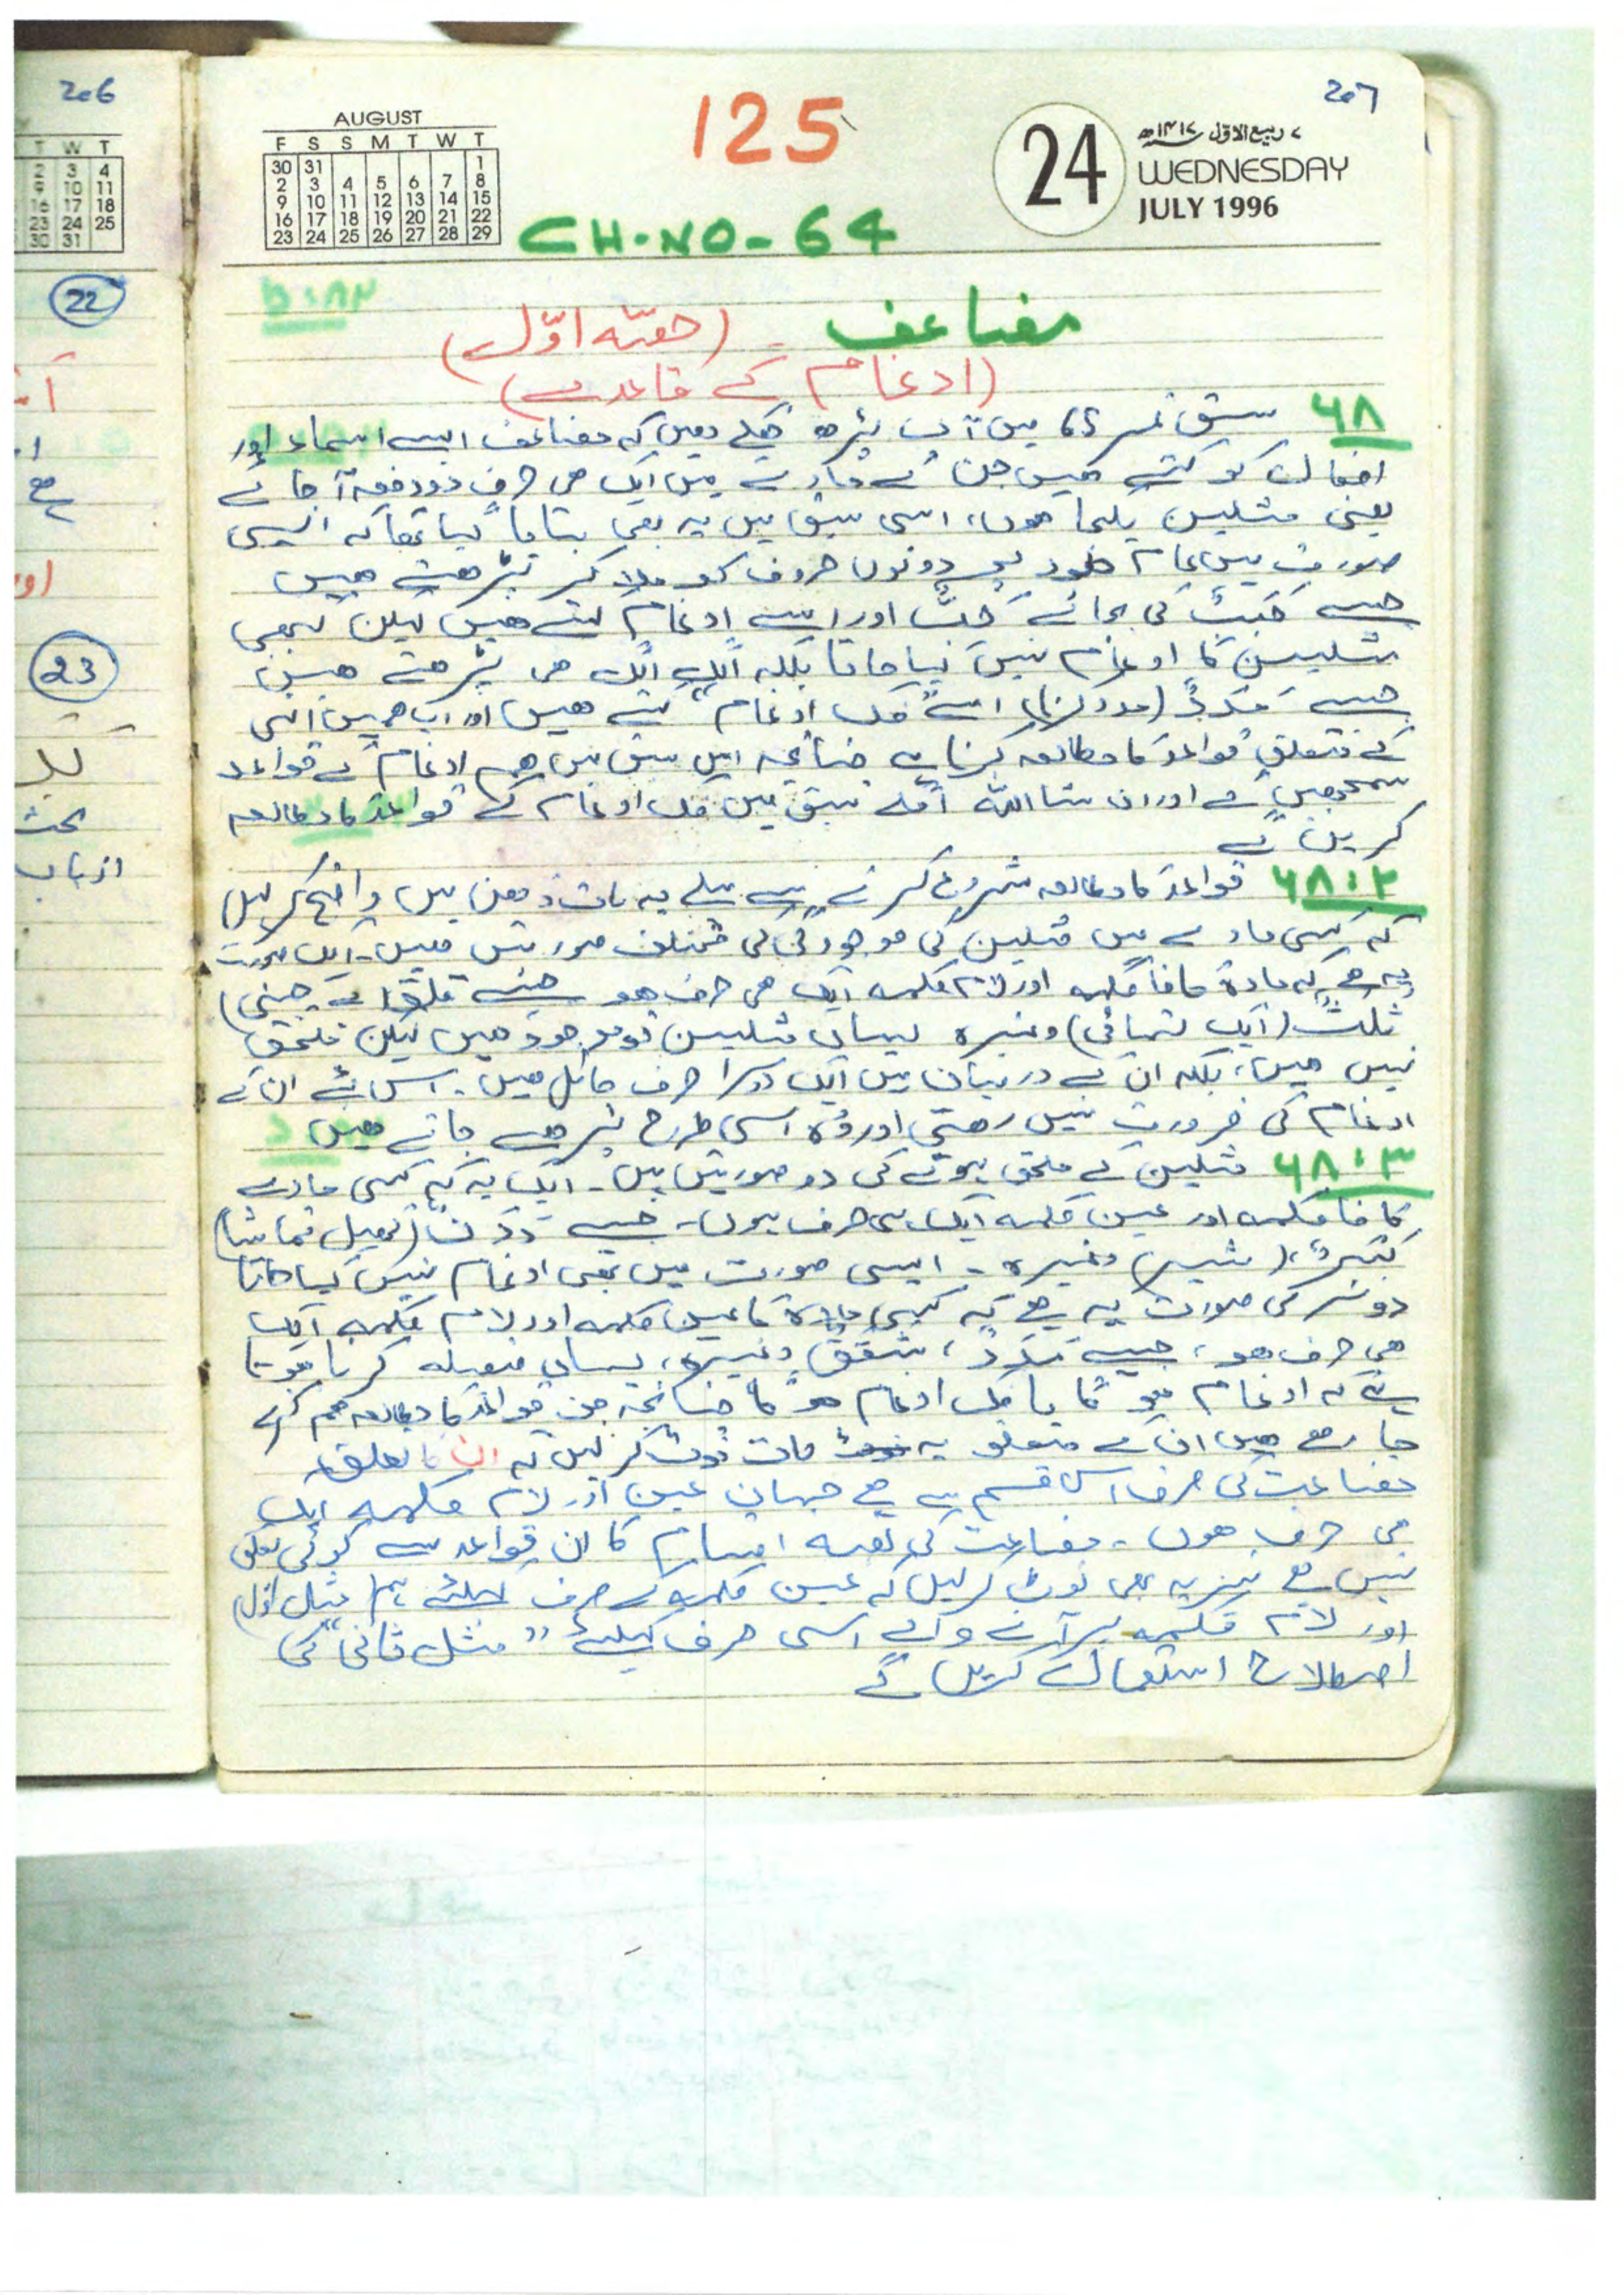 206
T W T
2 3 4
9 10 11
16 17 18
23 24 25
30 31
22
23
بحث
207
125
AUGUST
F S S M T W T
30 31 1
2 3 4 5 6 7 8
9 10 11 12 13 14 15
16 17 18 19 20 21 22
23 24 25 26 27 28 29
24
۷ ربیع الاوّل ۱۴۱۷ھ
WEDNESDAY
JULY 1996
CH.NO-64
مضاعف - (حصّہ اوّل)
(ادغام کے قاعدے)
۶۸ سبق نمبر 65 میں آپ پڑھ چکے ہیں کہ مضاعف ایسے اسماء اور
افعال کو کہتے ہیں جن کے مادے میں ایک ہی حرف دو دفعہ آجائے
یعنی مثلین یکجا ہوں، اسی سبق میں یہ بھی بتایا گیا تھا کہ ایسی
صورت میں عام طور پر دونوں حروف کو ملا کر پڑھتے ہیں
جیسے حَبَبَ کی بجائے حَبَّ اور اسے ادغام کہتے ہیں لیکن کبھی
مثلین کا ادغام نہیں کیا جاتا بلکہ الگ الگ ہی پڑھتے ہیں
جیسے مَدَدٌ (مدد کرنا) اسے "فک ادغام" کہتے ہیں اور اب ہمیں انہی
کے متعلق قواعد کا مطالعہ کرنا ہے چنانچہ اس سبق میں ہم ادغام کے قواعد
سمجھیں گے اور ان شا اللہ اگلے سبق میں فک ادغام کے قواعد کا مطالعہ
کریں گے
۶۸:۲ قواعد کا مطالعہ شروع کرنے سے پہلے یہ بات ذہن میں واضح کر لیں
کہ کسی مادے میں مثلین کی موجودگی کی مختلف صورتیں ہیں۔ ایک صورت
یہ ہے کہ مادہ کا فا کلمہ اور لام کلمہ ایک ہی حرف ہو جیسے قلق (بے چینی)
ثلث (ایک تہائی) وغیرہ یہاں مثلین تو موجود ہیں لیکن ملحق
نہیں ہیں، بلکہ ان کے درمیان میں ایک دوسرا حرف حائل ہیں۔ اس لئے ان کے
ادغام کی ضرورت نہیں رہتی اور وہ اسی طرح پڑھے جاتے ہیں
۶۸:۳ مثلین کے ملحق ہونے کی دو صورتیں ہیں۔ ایک یہ کہ کسی مادے
کا فا کلمہ اور عین کلمہ ایک ہی حرف ہوں۔ جیسے دَدَن (کھیل تماشا)
بَبْرٌ، (شیر) وغیرہ - ایسی صورت میں بھی ادغام نہیں کیا جاتا
دوسری صورت یہ ہے کہ کسی مادہ کا عین کلمہ اور لام کلمہ ایک
ہی حرف ہو، جیسے مَدَدٌ، شقق وغیرہ، یہاں فیصلہ کرنا ہوتا
ہے کہ ادغام ہو گا یا فک ادغام ہو گا چنانچہ جن قواعد کا مطالعہ ہم کرنے
جا رہے ہیں ان کے متعلق یہ بات نوٹ کر لیں کہ ان کا تعلق
مضاعف کی صرف اس قسم سے ہے جہاں عین اور لام کلمہ ایک
ہی حرف ہوں - مضاعف کی بقیہ اقسام کا ان قواعد سے کوئی تعلق
نہیں ہے نیز یہ بھی نوٹ کر لیں کہ عین کلمہ کے حرف کیلئے ہم (مثل اوّل)
اور لام کلمہ پر آنے والے اسی حرف کیلئے "مثل ثانی" کی
اصطلاح استعمال کریں گے